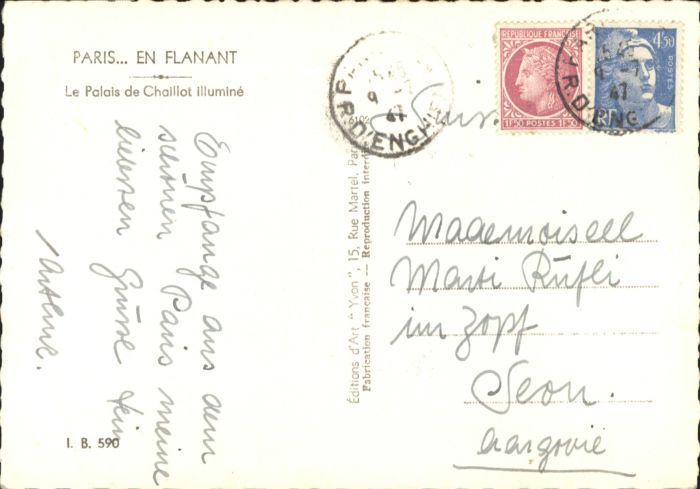 PARIS... EN FLANANT
Le Palais de Chaillot illuminé
Empfange aus dem
schönen Paris meine
liebsten Grüsse dein
I. B. 590
Éditions d'Art "Yvon", 15, Rue Martel, Paris
Fabrication française — Reproduction interdite
R. D'ENGHIEN
9 47
REPUBLIQUE FRANÇAISE
1F50 POSTES 1F50
4F50
POSTES
R. D'ENG
47
Suisse
Mademoisell
Marti Rüfli
im Zopf
Seon.
Aargovie